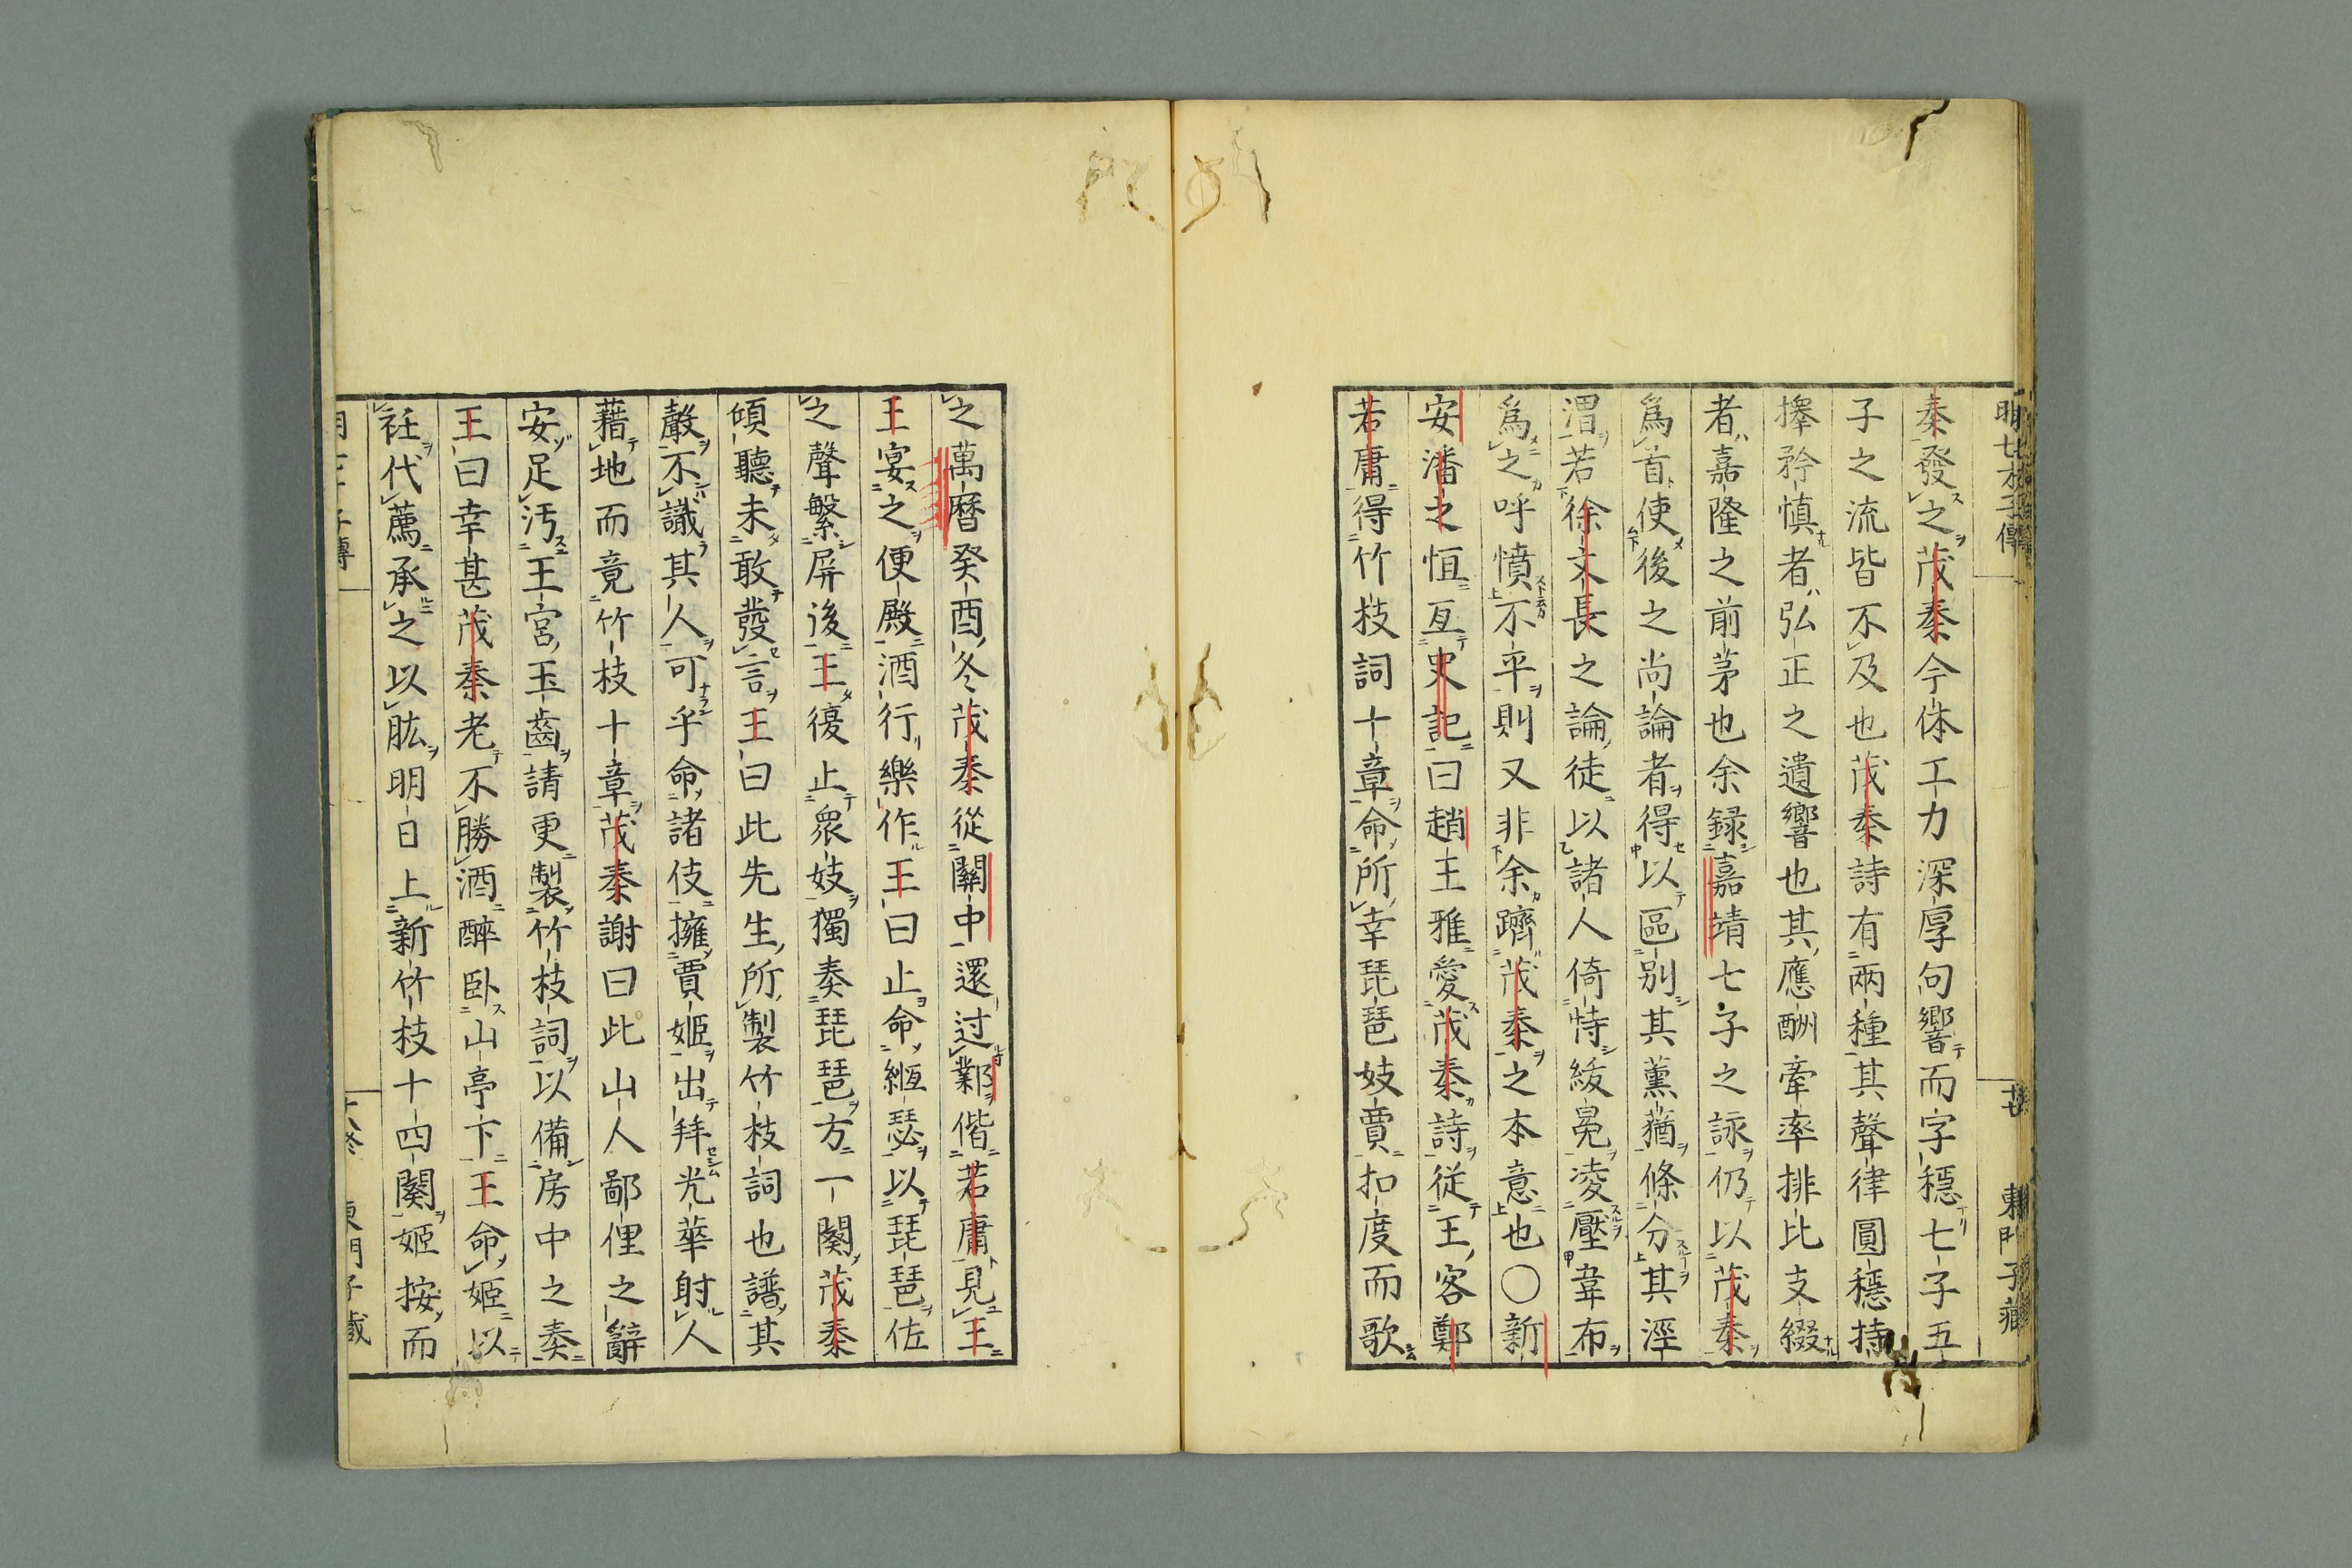 明七才子傳 廿 東門子藏
秦發之茂秦今体工力深厚句響而字穩七子五
子之流皆不及也茂秦詩有兩種其聲律圓穩持
擇矜慎者弘正之遺響也其應酬牽率排比支綴
者嘉隆之前茅也余録嘉靖七子之詠仍以茂秦
爲首使後之尚論者得以區别其薰蕕條分其涇
渭若徐文長之論徒以諸人倚恃紱冕凌壓韋布
爲之呼憤不平則又非余躋茂秦之本意也〇新
安潘之恒亙史記曰趙王雅愛茂秦詩従王客鄭
若庸得竹枝詞十章命所幸琵琶妓賈扣度而歌
之萬曆癸酉冬茂秦從關中還过鄴偕若庸見王
王宴之便殿酒行樂作王曰止命緪瑟以琵琶佐
之聲繁屏後王復止眾妓獨奏琵琶方一闋茂秦
傾聽未敢發言王曰此先生所製竹枝詞也譜其
聲不識其人可乎命諸伎擁賈姬出拜光華射人
藉地而竟竹枝十章茂秦謝曰此山人鄙俚之辭
安足汚王宮玉齒請更製竹枝詞以備房中之奏
王曰幸甚茂秦老不勝酒醉卧山亭下王命姬以
袵代薦承之以肱明日上新竹枝十四闋姬按而
子傳 東門子藏